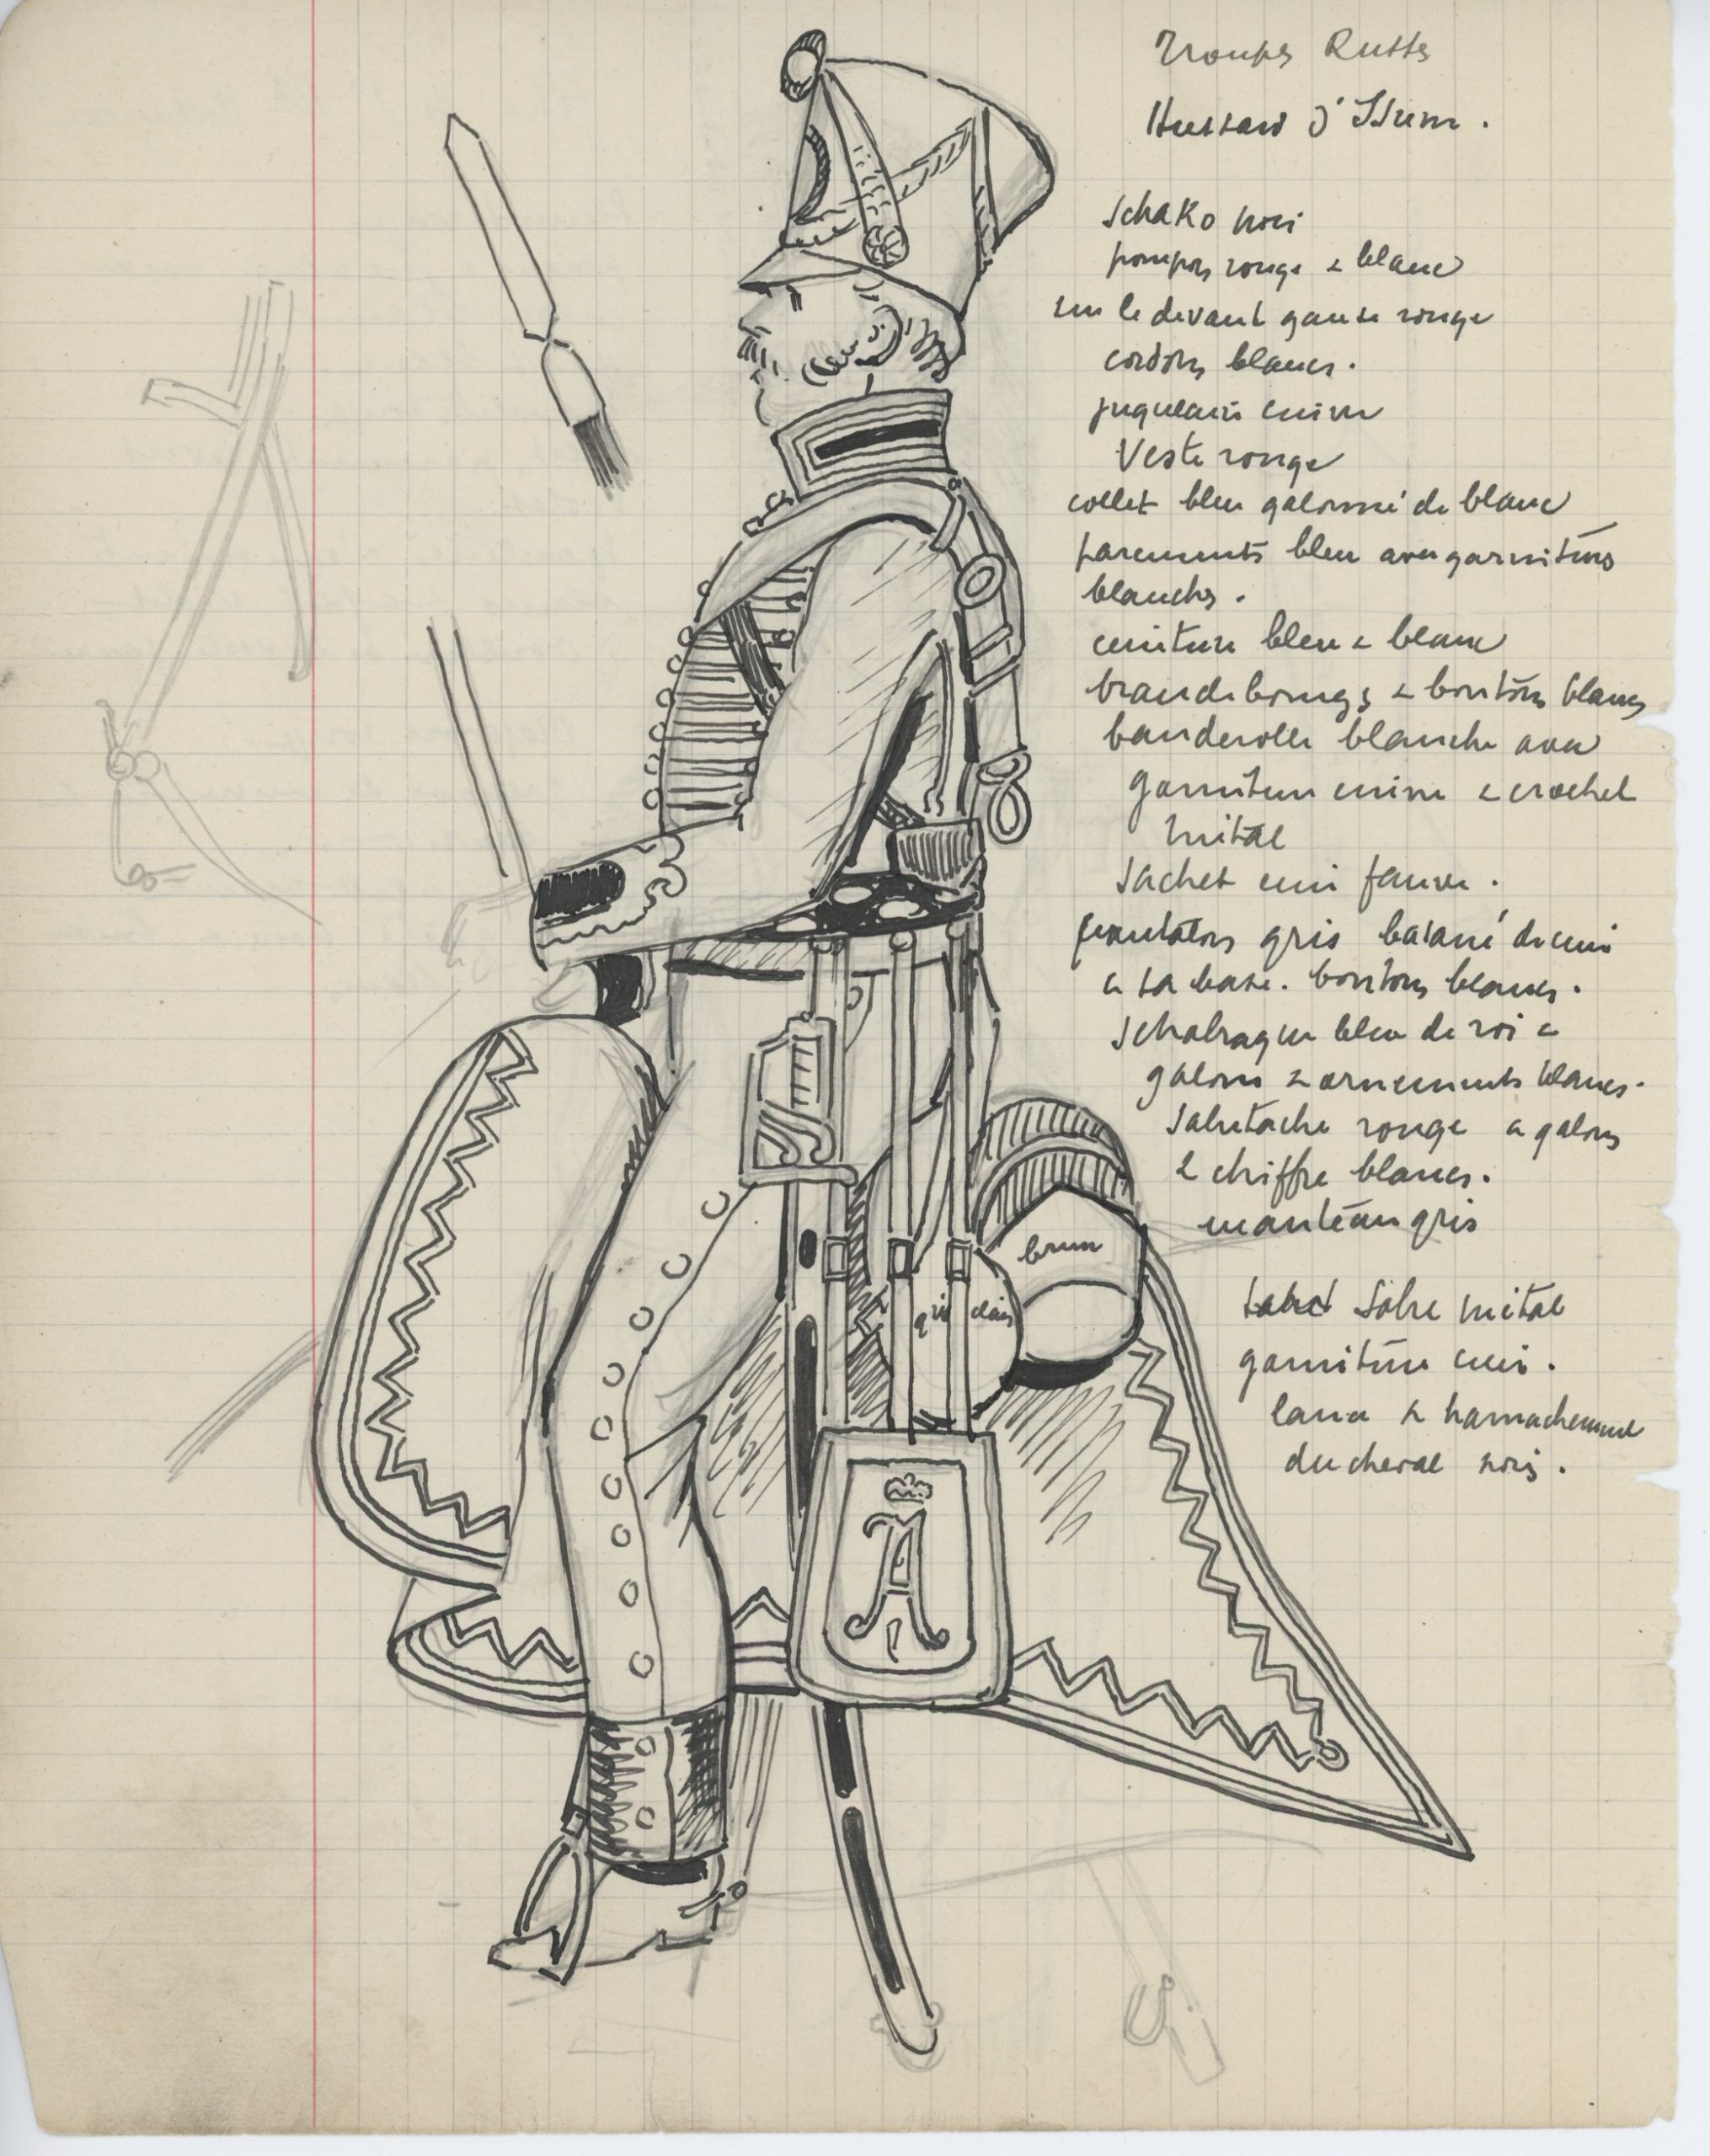 Troupes Russes
Hussard d'Isum.
Schako noir
pompon rouge & blanc
sur le devant ganse rouge
cordons blancs.
jugulaire cuivre
Veste rouge
collet bleu galonné de blanc
parements bleu avec garnitures
blanches.
ceinture bleu & blanc
brandebourgs & boutons blancs
banderolle blanche avec
garniture cuivre & crochet
métal
Sachet cuir fauve.
pantalons gris basané de cuir
a sa base. boutons blancs.
Schabraque bleu de roi a
galons & ornements blancs.
Sabretache rouge a galons
& chiffre blancs.
manteau gris
brun
gris clair
sabre métal
garniture cuir.
lance & harnachement
du cheval noir.
A